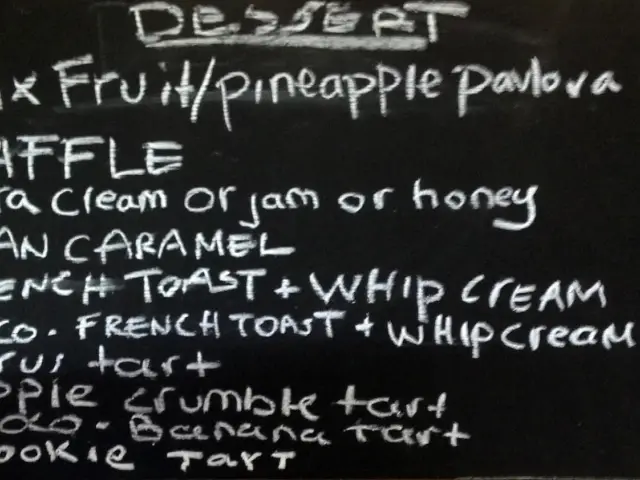 DESSERT
ix Fruit/pineapple pavlova
AFFLE
ra cream or jam or honey
AN CARAMEL
ENCH TOAST + WHIP CREAM
CO. FRENCH TOAST + WHIPcream
rus tart
pple crumble tart
oco. Banana tart
ookie TarT